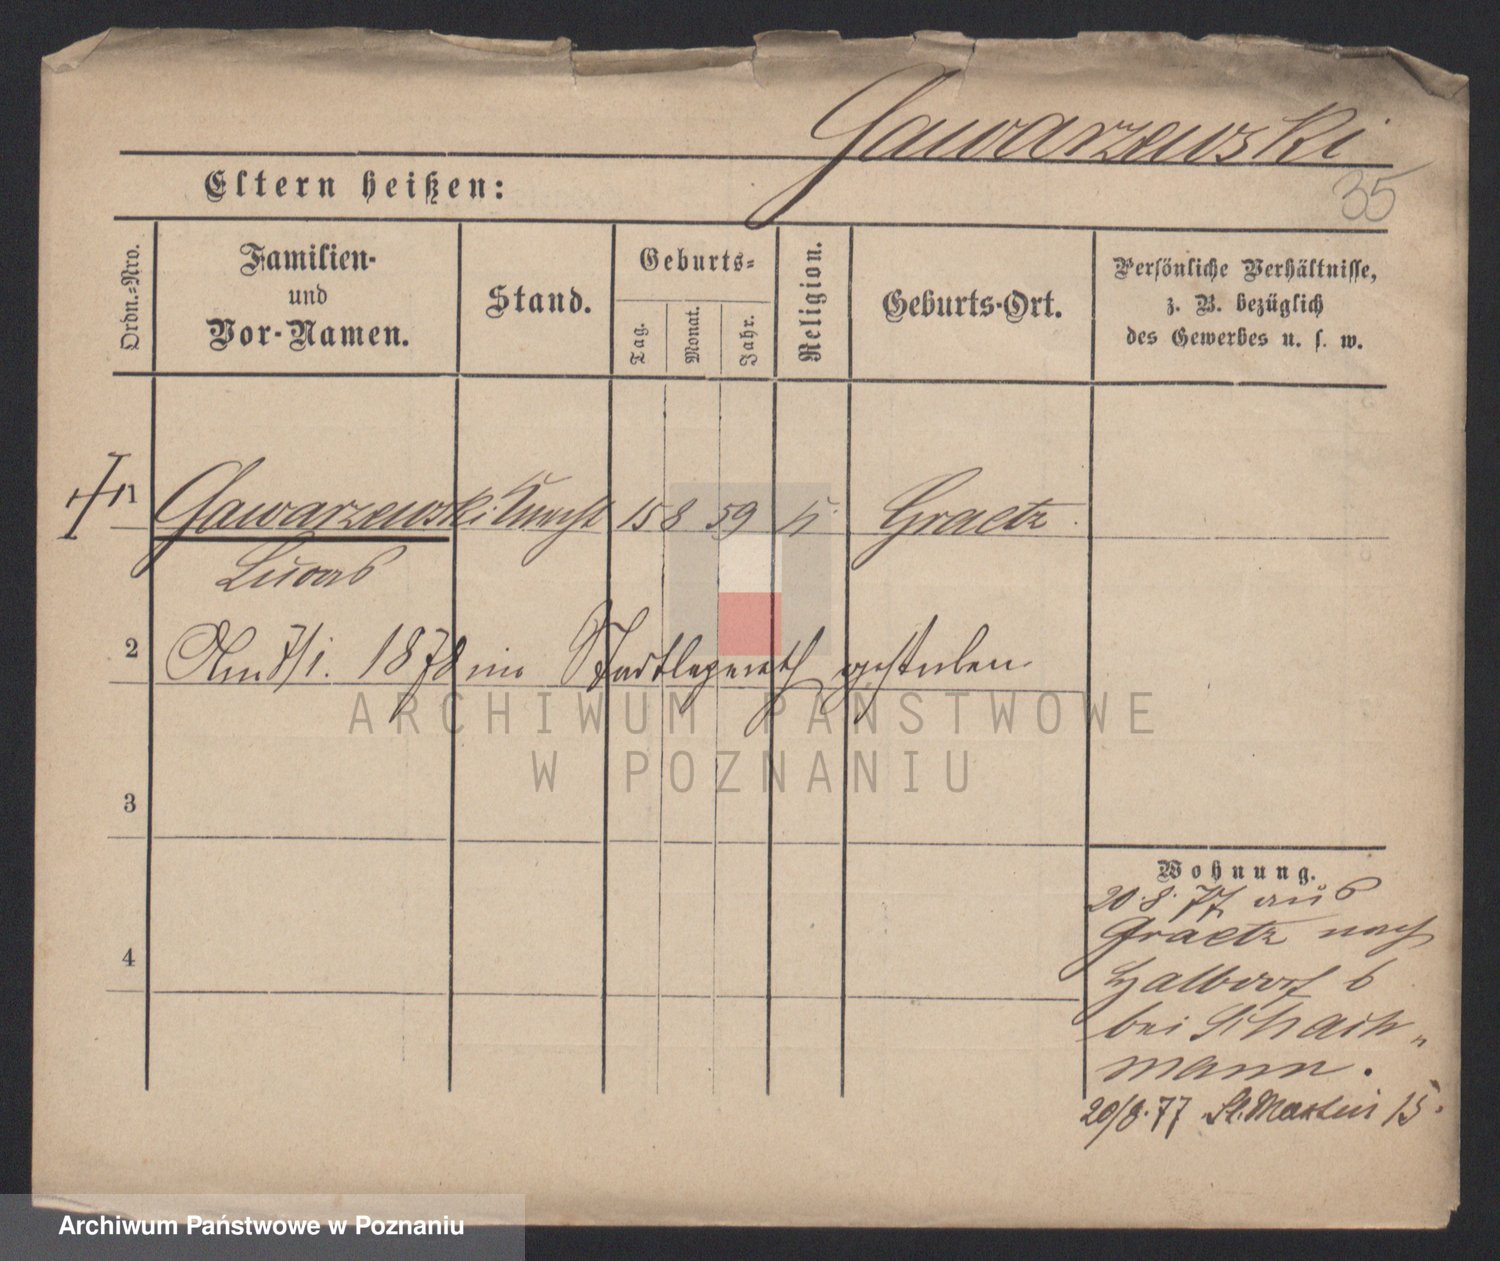 Gawarzewski
35
Eltern heißen:
Ordn.-Nro.
Familien-
und
Vor-Namen.
Stand.
Geburts-
Tag.
Monat.
Jahr.
Religion.
Geburts-Ort.
Persönliche Verhältnisse,
z. B. bezüglich
des Gewerbes u. s. w.
1 Gawarzewski Knecht 15 8 59 k. Graetz
Lucas
2 Am 7/1. 1878 im Stadtlazareth gestorben
3
4
Wohnung.
20.8.77 aus
Graetz nach
bei
mann.
20/8.77 St. Martin 15.
ARCHIWUM PAŃSTWOWE
W POZNANIU
Archiwum Państwowe w Poznaniu